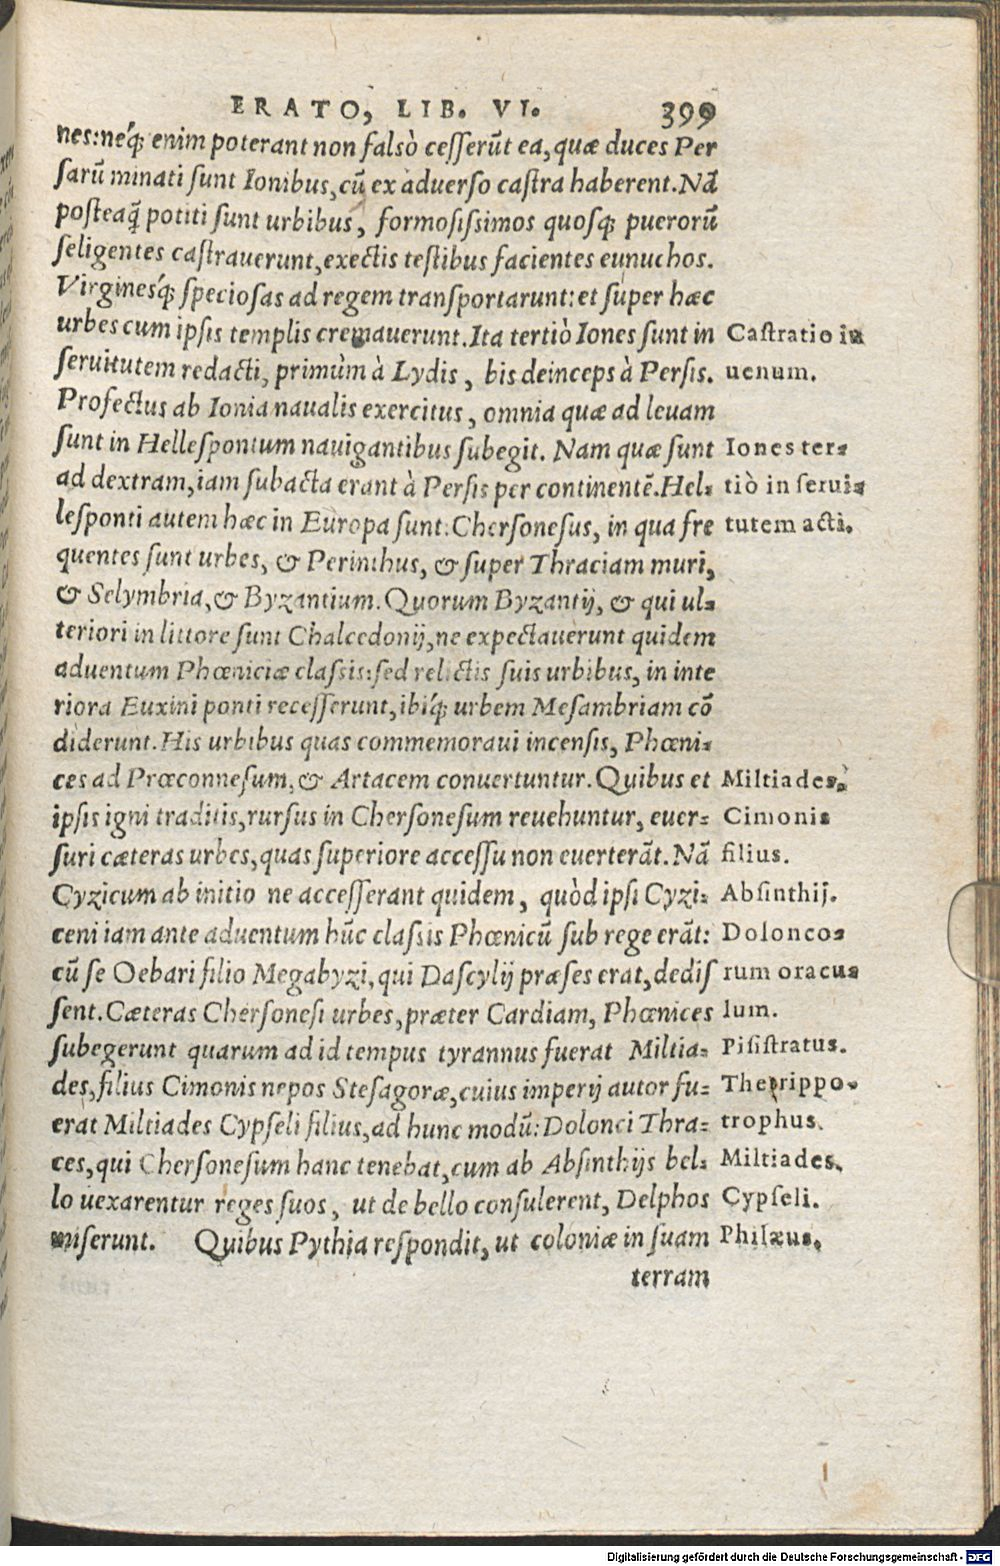 ERATO, LIB. VI. 399
nes: neq́; enim poterant non falsò cesserũt ea, quæ duces Per
sarũ minati sunt Ionibus, cũ ex aduerso castra haberent. Nã
posteaq̃ potiti sunt urbibus, formosissimos quosq; puerorũ
seligentes castrauerunt, exectis testibus facientes eunuchos.
Virginesq́; speciosas ad regem transportarunt: et super hæc
urbes cum ipsis templis cremauerunt. Ita tertiò Iones sunt in
seruitutem redacti, primùm à Lydis, bis deinceps à Persis.
Profectus ab Ionia naualis exercitus, omnia quæ ad leuam
sunt in Hellespontum nauigantibus subegit. Nam quæ sunt
ad dextram, iam subacta erant à Persis per continentẽ. Hel-
lesponti autem hæc in Europa sunt. Chersonesus, in qua fre
quentes sunt urbes, & Perinthus, & super Thraciam muri,
& Selymbria, & Byzantium. Quorum Byzantij, & qui ul-
teriori in littore sunt Chalcedonij, ne expectauerunt quidem
aduentum Phœniciæ classis: sed relictis suis urbibus, in inte
riora Euxini ponti recesserunt, ibiq́; urbem Mesambriam cõ
diderunt. His urbibus quas commemoraui incensis, Phœni-
ces ad Prœconnesum, & Artacem conuertuntur. Quibus et
ipsis igni traditis, rursus in Chersonesum reuehuntur, euer-
suri cæteras urbes, quas superiore accessu non euerterãt. Nã
Cyzicum ab initio ne accesserant quidem, quòd ipsi Cyzi-
ceni iam ante aduentum hũc classis Phœnicũ sub rege erãt:
cũ se Oebari filio Megabyzi, qui Dascylij præses erat, dedis
sent. Cæteras Chersonesi urbes, præter Cardiam, Phœnices
subegerunt quarum ad id tempus tyrannus fuerat Miltia-
des, filius Cimonis nepos Stesagoræ, cuius imperij autor fu-
erat Miltiades Cypseli filius, ad hunc modũ: Dolonci Thra-
ces, qui Chersonesum hanc tenebat, cum ab Absinthijs bel-
lo uexarentur reges suos, ut de bello consulerent, Delphos
miserunt. Quibus Pythia respondit, ut coloniæ in suam
terram
Castratio iu
uenum.
Iones ter-
tiò in serui-
tutem acti.
Miltiades,
Cimonis
filius.
Absinthij.
Dolonco-
rum oracu-
lum.
Pisistratus.
Thetrippo-
trophus.
Miltiades.
Cypseli.
Philæus.
Digitalisierung gefördert durch die Deutsche Forschungsgemeinschaft - DFG